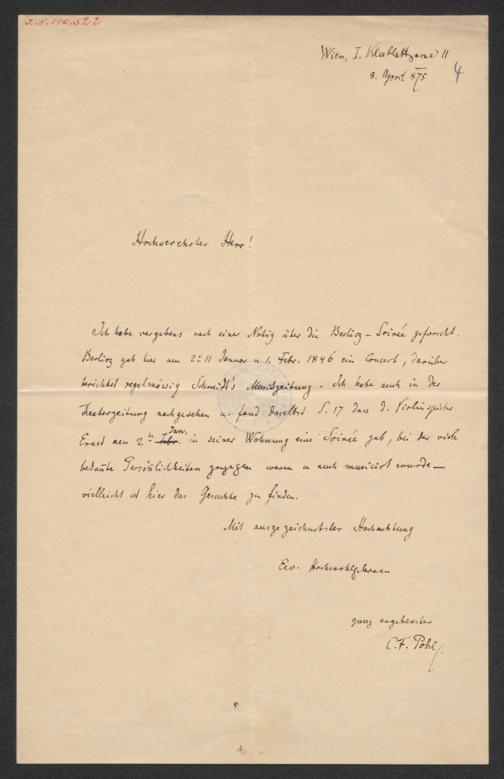 I.N. 110.522
Wien, I. Kleeblattgasse 11
8. April 875
4
Hochverehrter Herr!
Ich habe vergebens nach einer Notiz über die Berlioz-Soirée geforscht.
Berlioz gab hier am 2. 11 Januar u 1. Febr. 1846 ein Concert, darüber
berichtet regelmässig Schmidt's Musikzeitung. Ich habe auch in der
Theaterzeitung nachgesehen u. fand daselbst S. 17 dass d. Violinspieler
Jänr.
Ernst am 2ten Febr. in seiner Wohnung eine Soirée gab, bei der viele
bekannte Persönlichkeiten zugegen waren u auch musicirt wurde –
vielleicht ist hier das Gesuchte zu finden.
Mit ausgezeichneter Hochachtung
Ew. Hochwohlgeboren
ganz ergebenster
C. F. Pohl